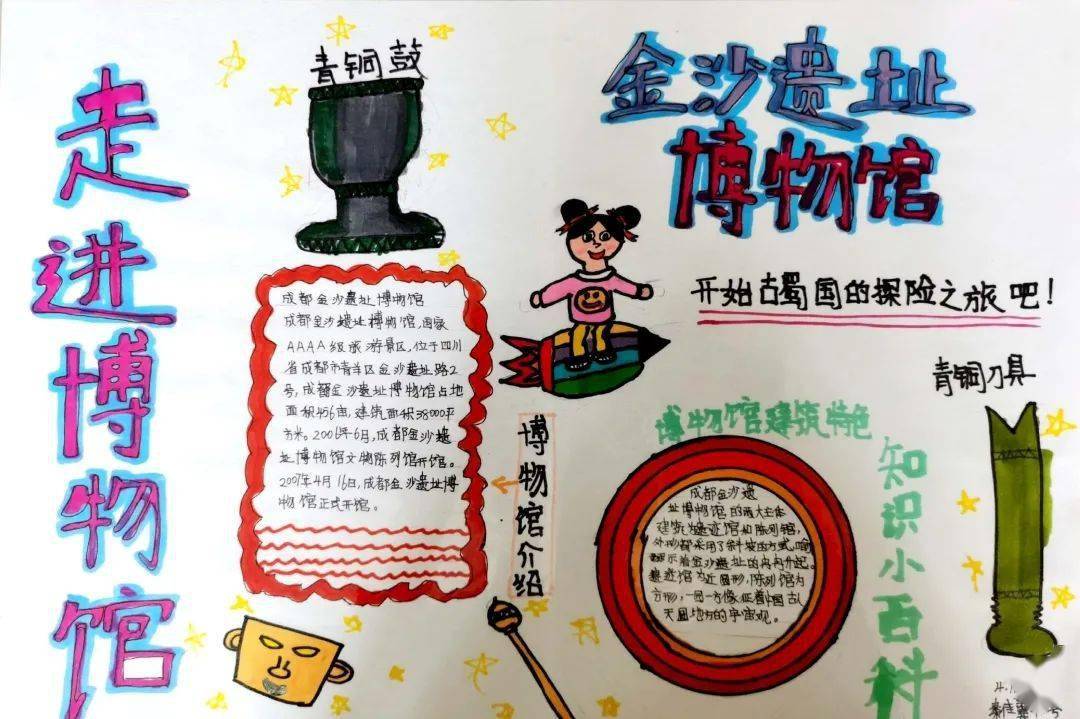 走进博物馆
青铜鼓
金沙遗址
博物馆
开始古蜀国的探险之旅吧!
成都金沙遗址博物馆
成都金沙遗址博物馆,国家
AAAA级旅游景区,位于四川
省成都市青羊区金沙遗址路2
号,成都金沙遗址博物馆占地
面积456亩,建筑面积38000平
方米。2006年6月,成都金沙遗
址博物馆文物陈列馆开馆。
2007年4月16日,成都金沙遗址博
物馆正式开馆。
博物馆介绍
博物馆建筑特色
成都金沙遗
址博物馆的两大主体
建筑为遗迹馆和陈列馆,
外形都采用了斜坡的方式,喻
示着金沙遗址的冉冉升起。
遗迹馆为近圆形,陈列馆为
方形,一圆一方象征着中国古人
天圆地方的宇宙观。
知识小百科
青铜刀具